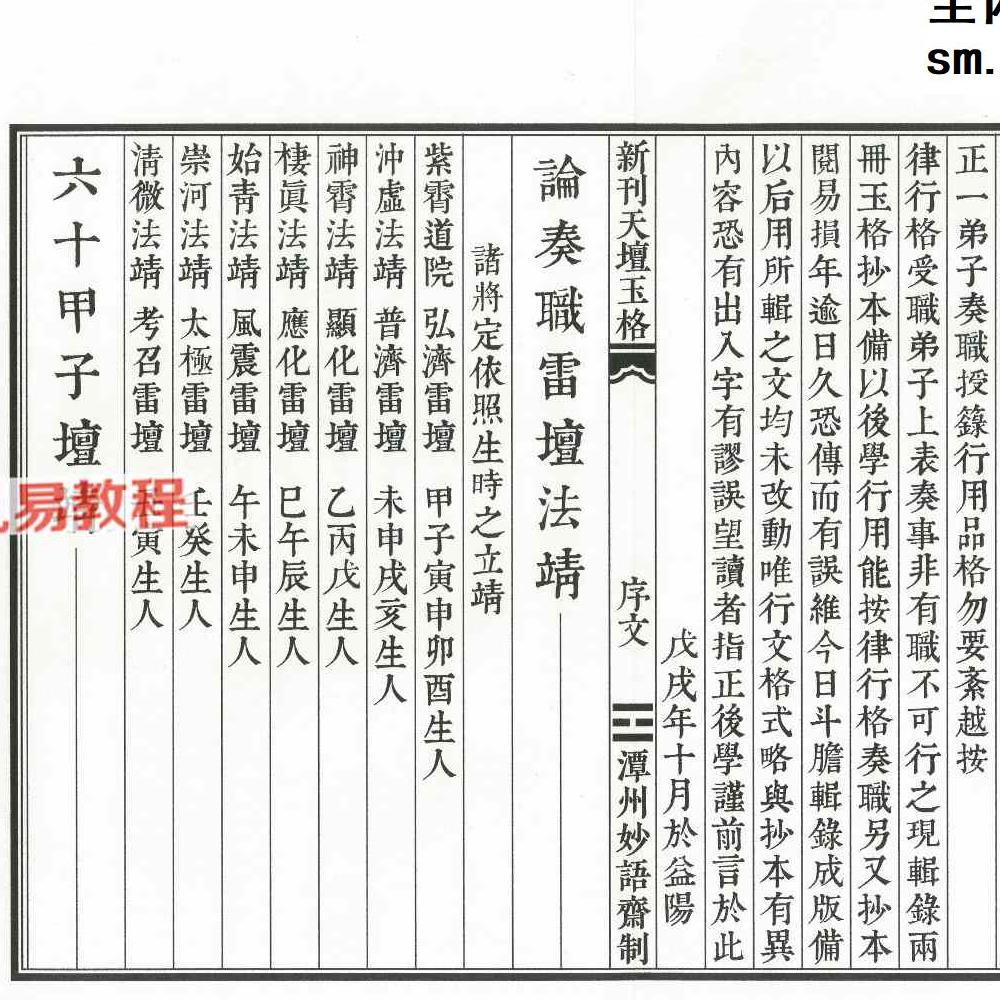 sm.
正一弟子奏職授籙行用品格勿要紊越按
律行格受職弟子上表奏事非有職不可行之現輯錄兩
冊玉格抄本備以後學行用能按律行格奏職另又抄本
閱易損年逾日久恐傳而有誤維今日斗膽輯錄成版備
以后用所輯之文均未改動唯行文格式略與抄本有異
內容恐有出入字有謬誤望讀者指正後學謹前言於此
戊戌年十月於益陽
新刊天壇玉格 序文 潭州妙語齋制
論奏職雷壇法靖
諸將定依照生時之立靖
紫霄道院 弘濟雷壇 甲子寅申卯酉生人
沖虛法靖 普濟雷壇 未申戌亥生人
神霄法靖 顯化雷壇 乙丙戊生人
棲眞法靖 應化雷壇 巳午辰生人
始青法靖 風震雷壇 午未申生人
崇河法靖 太極雷壇 壬癸生人
清微法靖 考召雷壇 寅生人
六十甲子壇
易教程